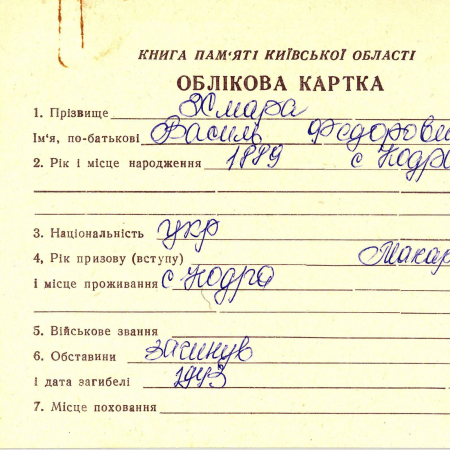 КНИГА ПАМ'ЯТІ КИЇВСЬКОЇ ОБЛАСТІ
ОБЛІКОВА КАРТКА
1. Прізвище Жмара
Ім'я, по-батькові Василь Федорови
2. Рік і місце народження 1889 с Кодра
3. Національність укр
4, Рік призову (вступу) Макар
і місце проживання с Кодра
5. Військове звання
6. Обставини загинув
і дата загибелі 1943
7. Місце поховання